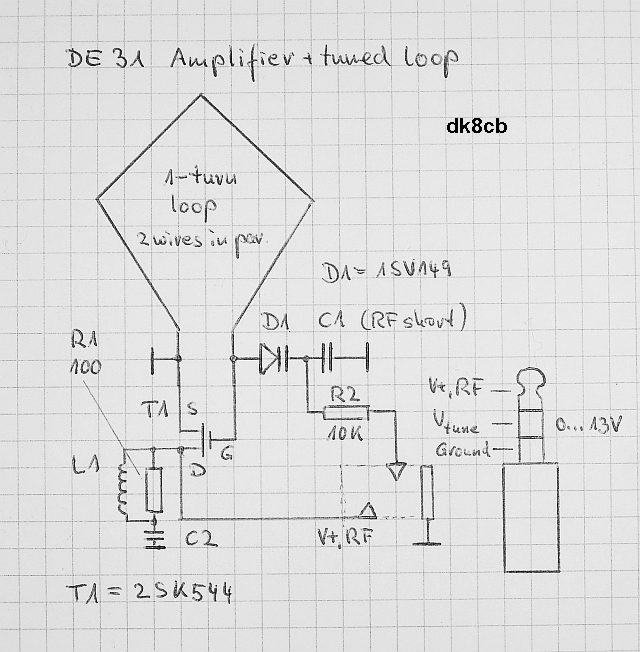 DE 31 Amplifier + tuned loop
dk8cb
1-turn
loop
2 wires in par.
D1 = 1SV149
D1 C1 (RF short)
R1
100
T1 S
R2
10K
G
D
L1
C2
V+, RF
V+, RF
Vtune
0...13V
Ground
T1 = 2SK544